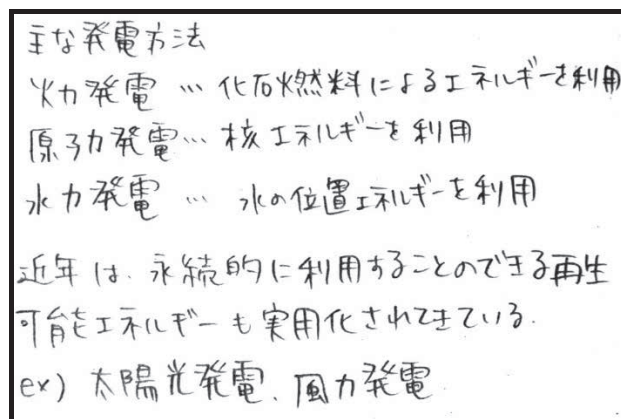 主な発電方法
火力発電 … 化石燃料によるエネルギーを利用
原子力発電… 核エネルギーを利用
水力発電 … 水の位置エネルギーを利用
近年は、永続的に利用することのできる再生
可能エネルギーも実用化されてきている.
ex) 太陽光発電、風力発電